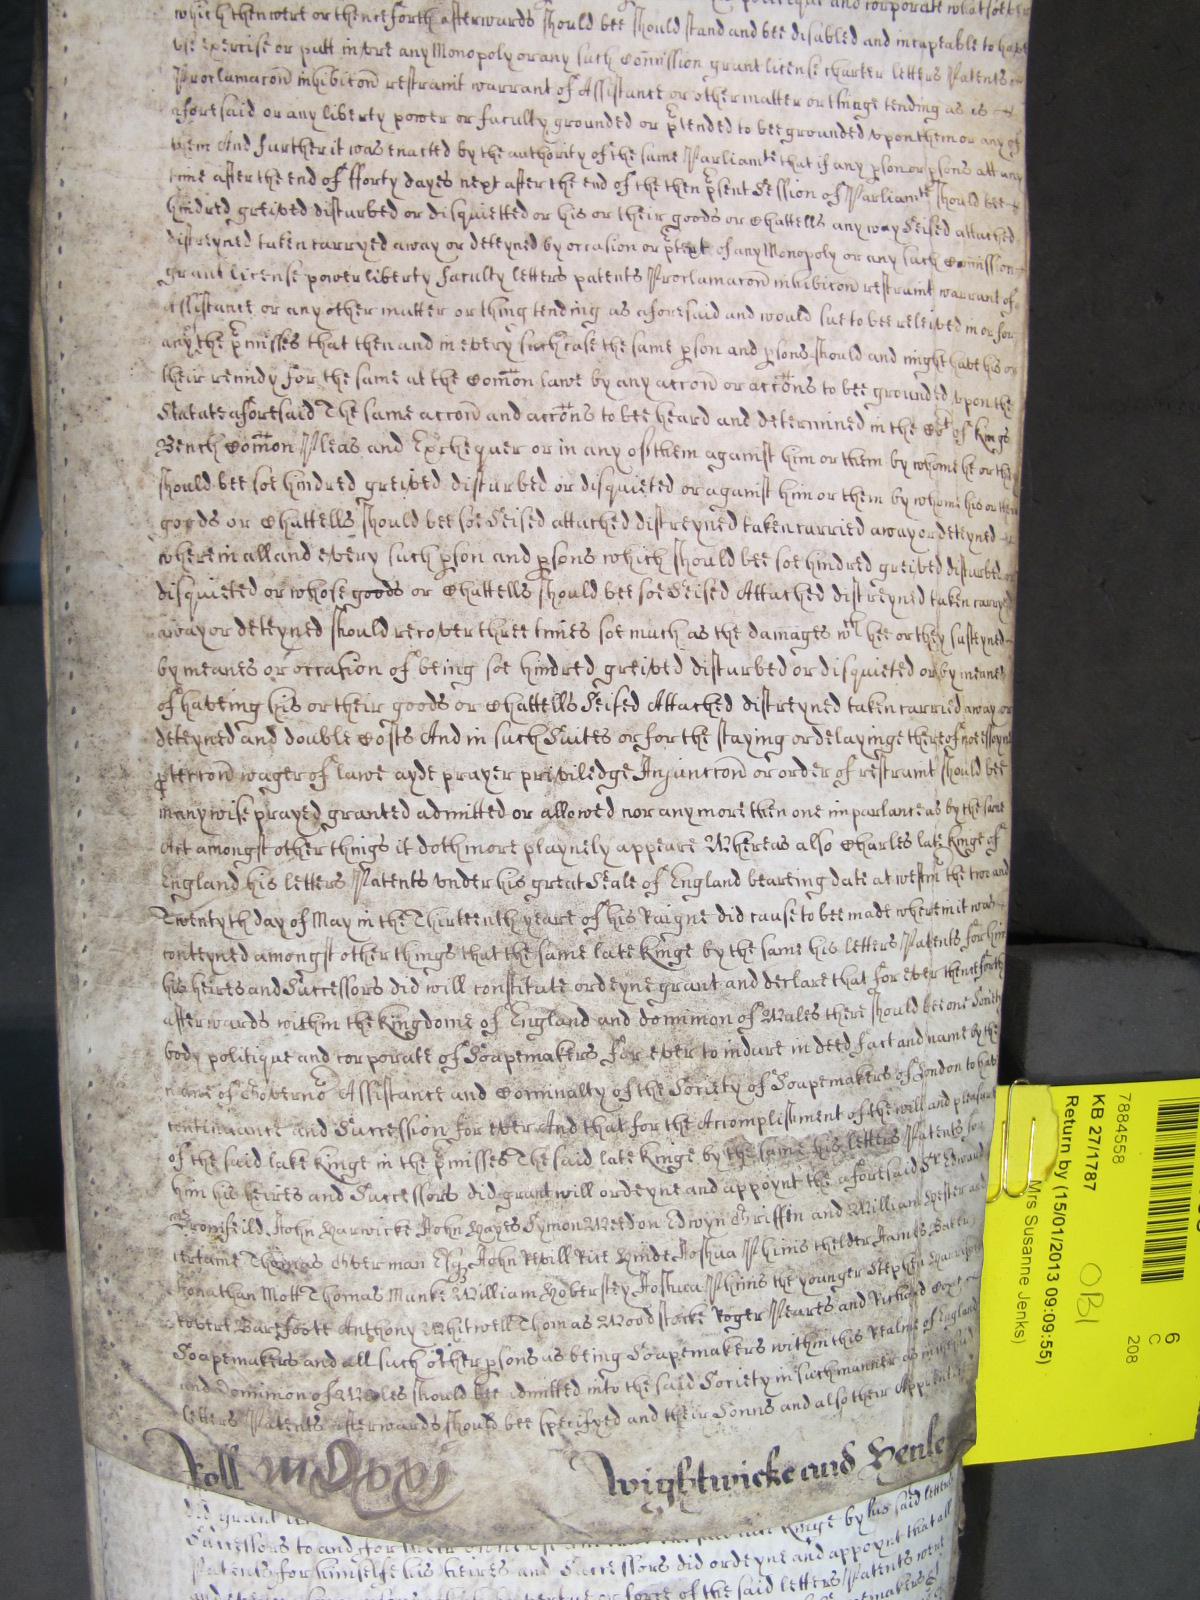 politique and corporate whatsoever
which then were or thenceforth afterwards should bee should stand and bee disabled and incapeable to have
use exercise or putt in ure any Monopoly or any such Comission grant license charter letters Patents
Proclamacon inhibicon restraint warrant of Assistance or other matter or thinge tending as is
aforesaid or any liberty power or faculty grounded or ptended to bee grounded upon them or any of
them And further it was enacted by the authority of the same Parliamt that if any pson or psons att any
time after the end of fforty dayes next after the end of the then psent Session of Parliamt should bee
hindred greived disturbed or disquietted or his or their goods or Chattells any way Seised attached
distreyned taken carryed away or deteyned by occasion or ptext of any Monopoly or any such Comission
grant license power liberty faculty letters patents Proclamacon inhibicon restraint warrant of
assistance or any other matter or thing tending as aforesaid and would sue to bee releived in or for
any the pmisses that then and in every such case the same pson and psons should and might have his or
their remidy for the same at the Comon lawe by any accon or accons to bee grounded upon the
Statute aforesaid The same accon and accons to bee heard and determined in the Cot of Kings
Bench Comon Pleas and Exchequer or in any of them against him or them by whome he or they
should bee soe hindred greived disturbed or disquieted or against him or them by whome his or their
goods or Chattells should bee soe Seised attached distreyned taken carried away or deteyned
wherein all and every such pson and psons which should bee soe hindred greived disturbed or
disquieted or whose goods or Chattells should bee soe Seised Attached distreyned taken carryed
away or deteyned should recover three times soe much as the damages wch hee or they susteyned
by meanes or occasion of being soe hindred greived disturbed or disquieted or by meanes
of haveing his or their goods or Chattells Seised Attached distreyned taken carried away or
deteyned and double Costs And in such Suites or for the staying or delayinge thereof noe essoyne
pteccon wager of lawe ayde prayer priviledge Injunccon or order of restraint should bee
in any wise prayed granted admitted or allowed nor any more then one imparlance as by the same
Act amongst other things it doth more playnely appeare Whereas also Charles late Kinge of
England his letters Patents under his great Seale of England beareing date at westm the two and
Twentyth day of May in the Thirteenth yeare of his Raigne did cause to bee made wherein it was
conteyned amongst other things that the same late Kinge by the same his letters Patents for him
his heires and Successors did will constitute ordeyne grant and declare that for ever thenceforth
afterwards within the Kingdome of England and dominion of Wales there should bee one Society
body politique and corporate of Soapemakers for ever to indure in deed fact and name by the
name of Governor Assistance and Cominalty of the Society of Soapemakers of London to have
continuance and Succession for ever And that for the Accomplishment of the will and pleasure
of the said late Kinge in the pmisses The said late Kinge by the same his letters Patents for
him his heires and Successors did grant will ordeyne and appoynt the aforesaid Sr Edward
Bromfeild John Harwicke John Hayes Symon Weedon Edwyn Griffin and William and
certaine Thomas Overman Esq John Revill Rice Hinde Joshua Phims thelder James
Jonathan Mott Thomas Munke William Joshua Phims the younger Stephen
Robert Barefoote Anthony Whitwell Thomas Woodstocke Roger Pearts and Richard
Soapemakers and all such other psons as being Soapemakers within this Realme of England
and Dominion of Wales should bee admitted into the said Society in such manner as in the said
letters Patents afterwards should bee specifyed and their Sonns and also their
Roll Wightwicke and Henle
did grant
Successors to and for their Kinge by his said letters
Patents for himselfe his heires and Successors did ordeyne and appoynt that all
or force of the said letters Patents were
7884558
KB 27/1787
Return by (15/01/2013 09:09:55)
Mrs Susanne Jenks)
OBJ
6
C
208